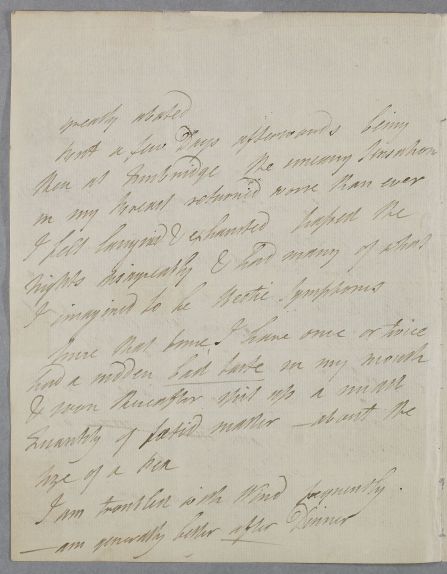 greatly abated
but a few Days afterwards being
then at Tunbridge the uneasy Sensation
in my breast returned more than ever
I felt languid & exhausted passed the
Nights & had many of what
I imagined to be Hectic Symptoms
Since that time, I have once or twice
had a sudden bad taste in my mouth
& soon thereafter spit up a small
Quantity of fœtid matter – about the
size of a Pea
I am troubled with Wind frequently.
– am generally better after Dinner